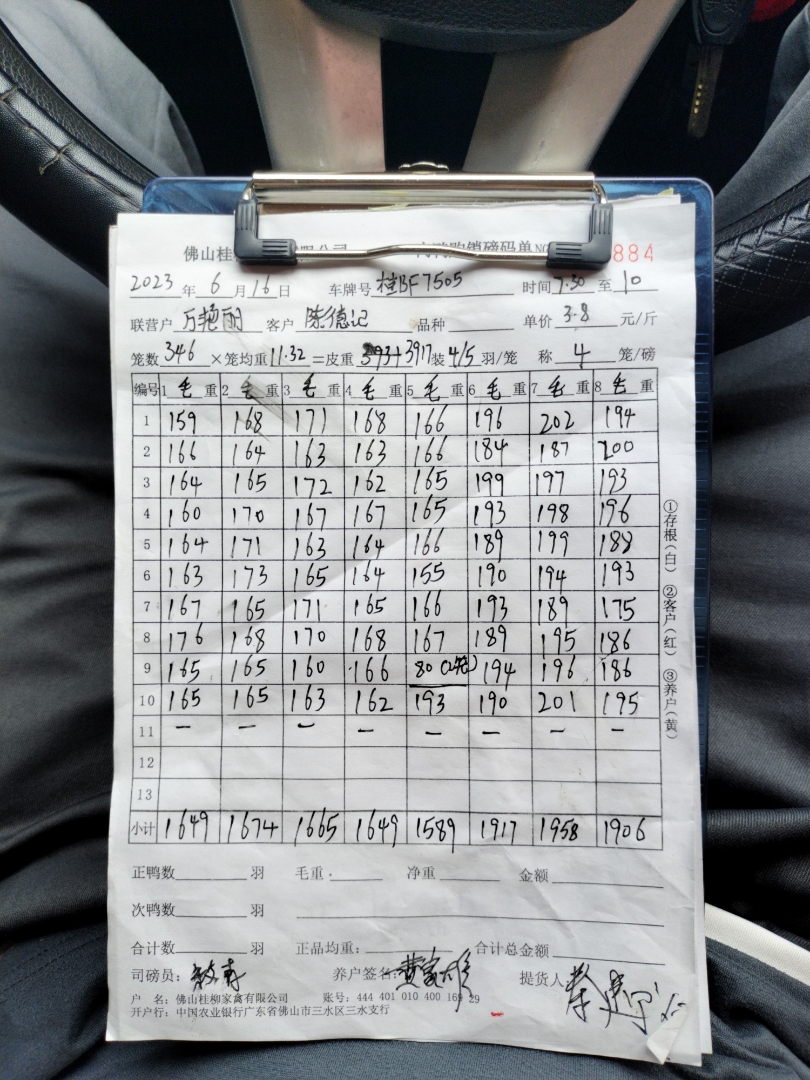 佛山桂 销磅码单NO 884
2023年6月16日 车牌号 桂BF7505 时间7.30至10
联营户 万艳丽 客户 陈德记 品种 单价 3.8 元/斤
笼数 346 ×笼均重 11.32 =皮重 3917 装 4/5 羽/笼 称 4 笼/磅
编号 1 毛 重 2 毛 重 3 毛 重 4 毛 重 5 毛 重 6 毛 重 7 毛 重 8 毛 重
1 159 168 171 168 166 196 202 194
2 166 164 163 163 166 184 187 200
3 164 165 172 162 165 199 197 193
4 160 170 167 167 165 193 198 196
5 164 171 163 164 166 189 199 188
6 163 173 165 164 155 190 194 193
7 167 165 171 165 166 193 189 175
8 176 168 170 168 167 189 195 186
9 165 165 160 166 80 (2笼) 194 196 186
10 165 165 163 162 193 190 201 195
11 — — — — — — — —
12
13
小计 1649 1674 1665 1649 1589 1917 1958 1906
①存根(白) ②客户(红) ③养户(黄)
正鸭数 羽 毛重 净重 金额
次鸭数 羽
合计数 羽 正品均重: 合计总金额
司磅员: 养户签名: 黄家雄 提货人
户 名: 佛山桂柳家禽有限公司 账号: 444 401 010 400 169 29
开户行: 中国农业银行广东省佛山市三水区三水支行